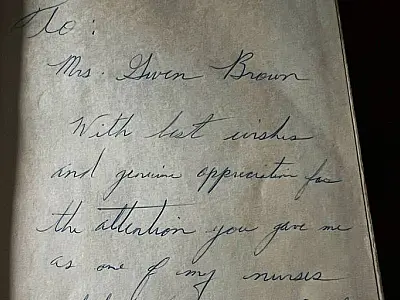 To:
Mrs. Gwen Brown
With best wishes
and genuine appreciation for
the attention you gave me
as one of my nurses